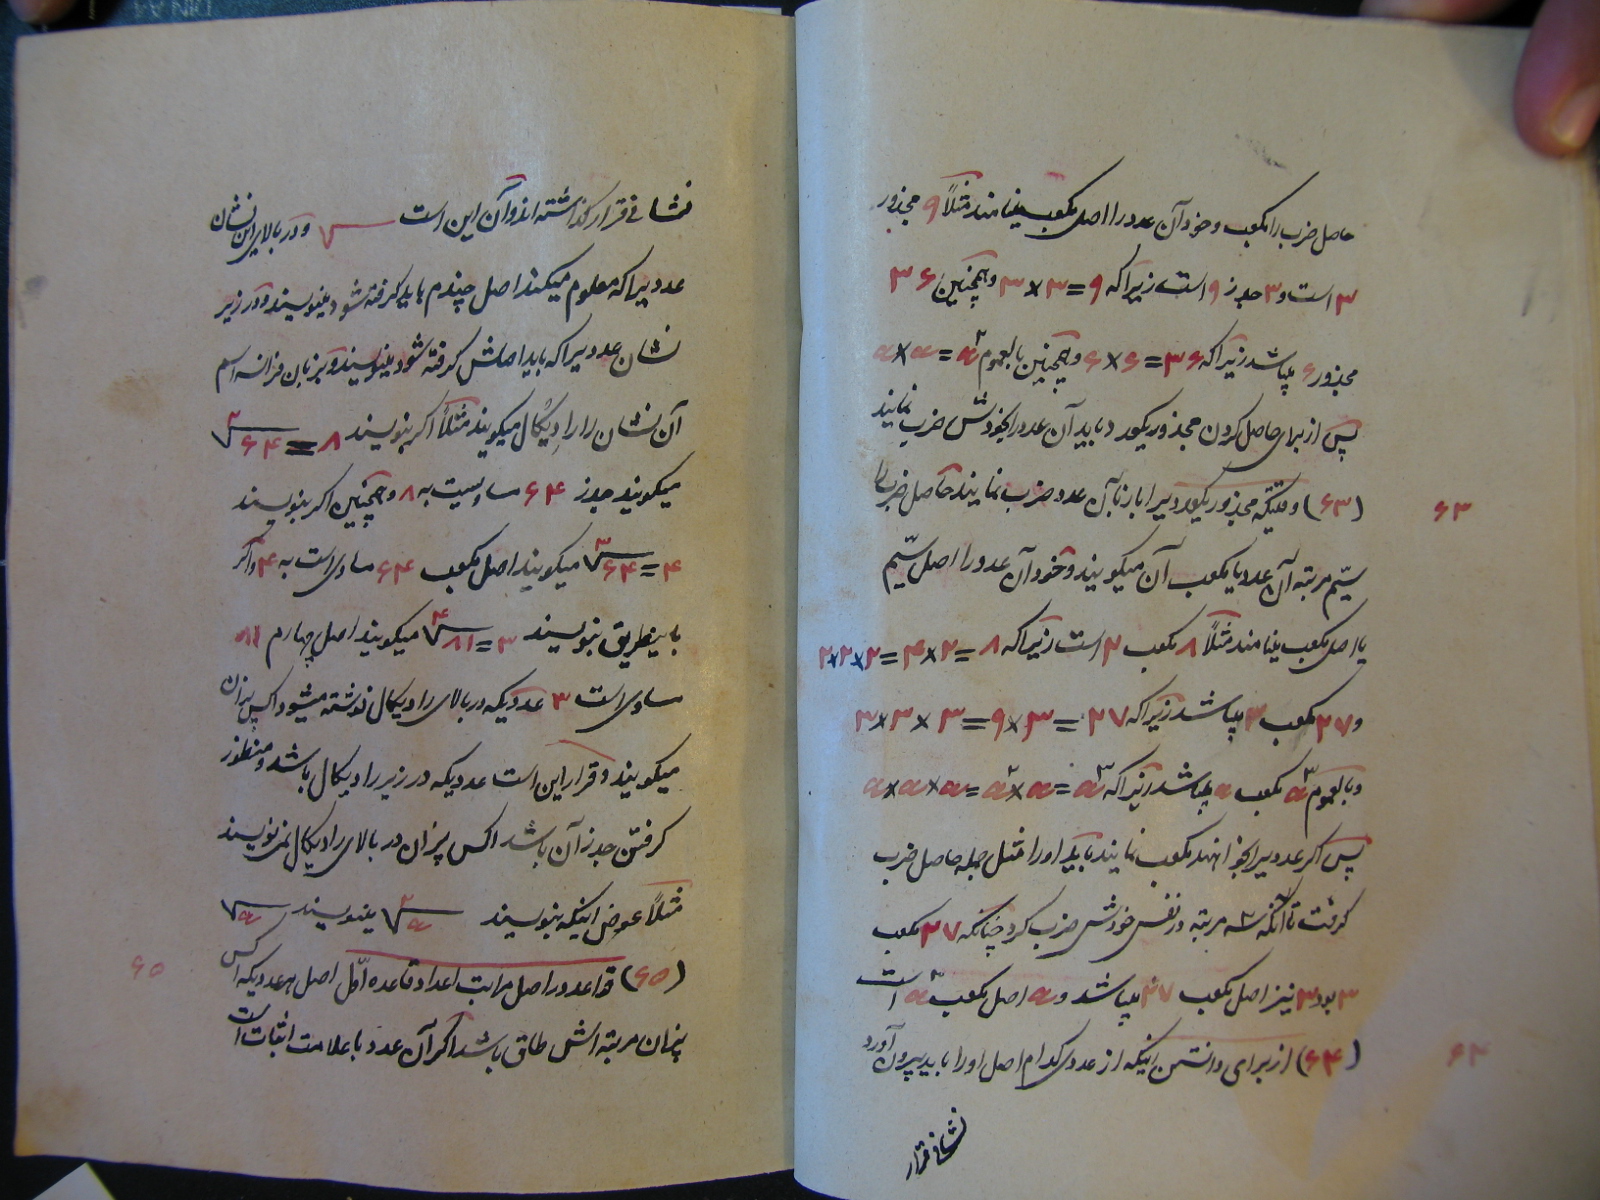 حاصل ضرب را مکعب و خود آن عدد را اصل مکعب مینامند مثلاً ۹ مجذور
۳ است و ۳ جذر ۹ است زیرا که ۹ = ۳ × ۳ و همچنین ۳۶
مجذور ۶ میباشد زیرا که ۳۶ = ۶ × ۶ و همچنین بالعموم a² = a × a
پس از برای حاصل کردن مجذور یکعدد باید آن عدد را بخودش ضرب نمایند
۶۳
(۶۳) وقتیکه مجذور یکعددیرا باز بآن عدد ضرب نمایند حاصل ضرب را
سیّم مرتبه آن عدد یا مکعب آن میکویند و خود آن عدد را اصل سیّم
یا اصل مکعب مینامند مثلاً ۸ مکعب ۲ است زیرا که ۸ = ۲ × ۴ = ۲ × ۲ × ۲
و ۲۷ مکعب ۳ میباشد زیرا که ۲۷ = ۳ × ۹ = ۳ × ۳ × ۳
و بالعموم a³ مکعب a میباشد زیرا که a³ = a² × a = a × a × a
پس اکر عددیرا بخواهند مکعب نمایند باید او را مثل جمله حاصل ضرب
کرفت تا آنکه سه مرتبه در نفس خودش ضرب کرد چنانکه ۲۷ مکعب
۳ بود ۳ نیز اصل مکعب ۲۷ میباشد و a اصل مکعب a³ است
۶۴
(۶۴) از برای دانستن اینکه از عددی کدام اصل او را باید بیرون آورد
نشانی قرار
نشانی قرار کذاشته اند و آن این است √ و در بالای این نشان
عددیرا که معلوم میکند اصل چندم باید کرفته شود مینویسند و در زیر
نشان عددیرا که باید اصلش کرفته شود مینویسند و بزبان فرانسه اسم
آن نشان را رادیکال میکویند مثلاً اکر بنویسند ۸ = ²√۶۴
میکویند جذر ۶۴ مساویست به ۸ و همچنین اکر بنویسند
۴ = ³√۶۴ میکویند اصل مکعب ۶۴ مساوی است به ۴ و اکر
باینطریق بنویسند ۳ = ⁴√۸۱ میکویند اصل چهارم ۸۱
مساوی است ۳ عددیکه در بالای رادیکال نوشته میشود اکس پزان
میکویند و قرار این است عددیکه در زیر رادیکال باشد و منظور
کرفتن جذر آن باشد اکس پزان در بالای رادیکال نمی نویسند
مثلاً عوض اینکه بنویسند ²√a مینویسند √a
۶۵
(۶۵) قواعد در اصل مراتب اعداد قاعده اوّل اصل هر عددیکه اکس
پزان مرتبه اش طاق باشد اکر آن عدد با علامت اثبات است